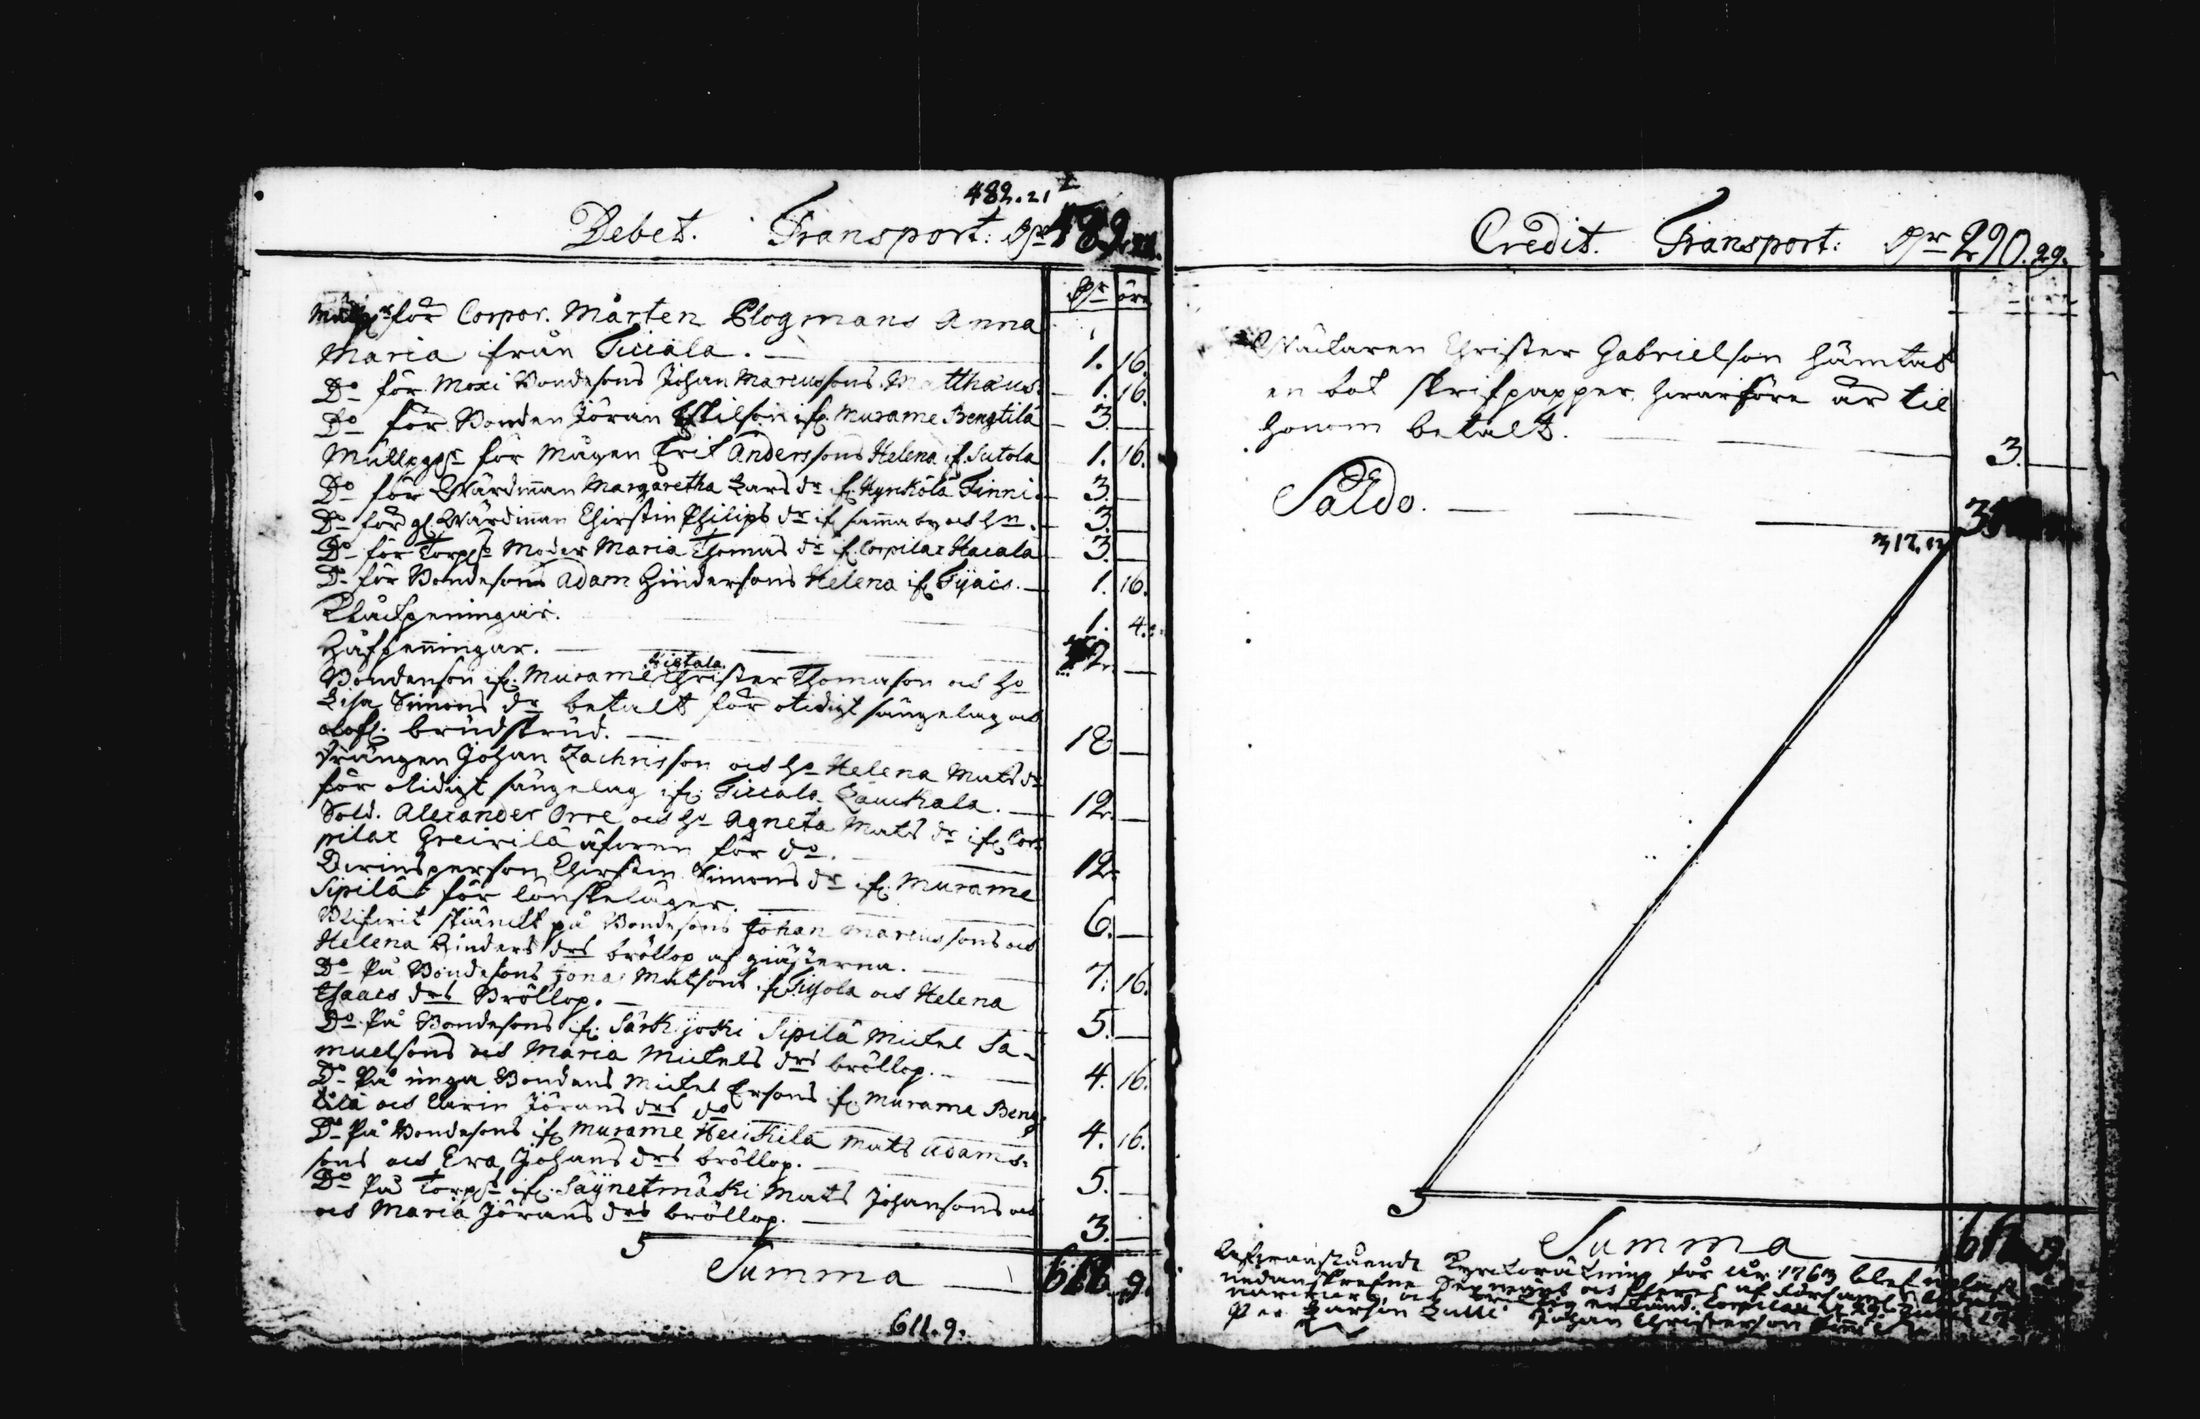 482.21
Debet. Transport: Dr 482.21.
Dr öre
Mullp. för Corpor. Mårten Plogmans Anna
Maria ifrån Ticiala. — 1. 16.
Do för Moxi Bondesons Johan Marcussons Matthæus. — 1. 16.
Do för Bonden Jöran Eskilson if. Murame Bengtilä — 3. —
Mullpgr för Mågen Erik Anderssons Helena if. Sutola 1. 16.
Do för Wärdinnan Margaretha Lars dr if. Hyrkölä Finni. — 3. —
Do för gl. Wärdinnan Chirstin Philips dr if samma by och hn. — 3. —
Do för Torps Moder Maria Thomas dr if. Corpilax Hacala 3. —
Do för Bondesons Adam Hindersons Helena if. Tyais. — 1. 16.
Klåckpeningar. 1. 4.
Håfpenningar. — 2. —
Bondenson if. Murame Pigtala Christer Thomason och ho
Lisa Simons dr betalt för otidigt sängelag och
olofl. brudskrud. — 18 —
Drängen Johan Zachrisson och ho Helena Mats dr
för otidigt sängelag if. Ticcala Lauckala. — 12. —
Sold. Alexander Orre och ho Agneta Mats dr if. Cor-
pilax Greirilä äfwen för do. 12.
Qwinsperson Chirstin Simons dr if. Murame
Sipilä för lönskeläger. 6. —
Blifwit skänckt på Bondesons Johan Marcussons och
Helena Hinders drs bröllop af gjästerna. — 7. 16.
Do På Bondesons Jonas Matsons if. Tijola och Helena
Isaacs drs Bröllop. — 5. —
Do På Bondesons if. Särkijoki Sipilä Mickel Sa-
muelsons och Maria Mickels drs bröllop. — 4. 16.
Do På unga Bondens Mickel Ersons if. Murame Beng-
tilä och Carin Jörans drs do 4. 16.
Do På Bondesons if. Murame Heickilä Mats Adams-
sons och Eva Johans drs bröllop. — 5. —
Do På Torps if. Säynetmäki Mats Johansons och
och Maria Jörans drs bröllop. — 3. —
Summa — 611. 9.
611. 9.
Credit. Transport: Dr 290. 29.
öre
Wäckaren Christer Gabrielson hämtat
en bok skrifpapper hwarföre är til
honom betalt. — 3. —
Saldo. —
317. 12
Summa — 611. 9.
Kyrckoräkning för år 1763 blef
nedanskrefne
Lars Johan Christerson